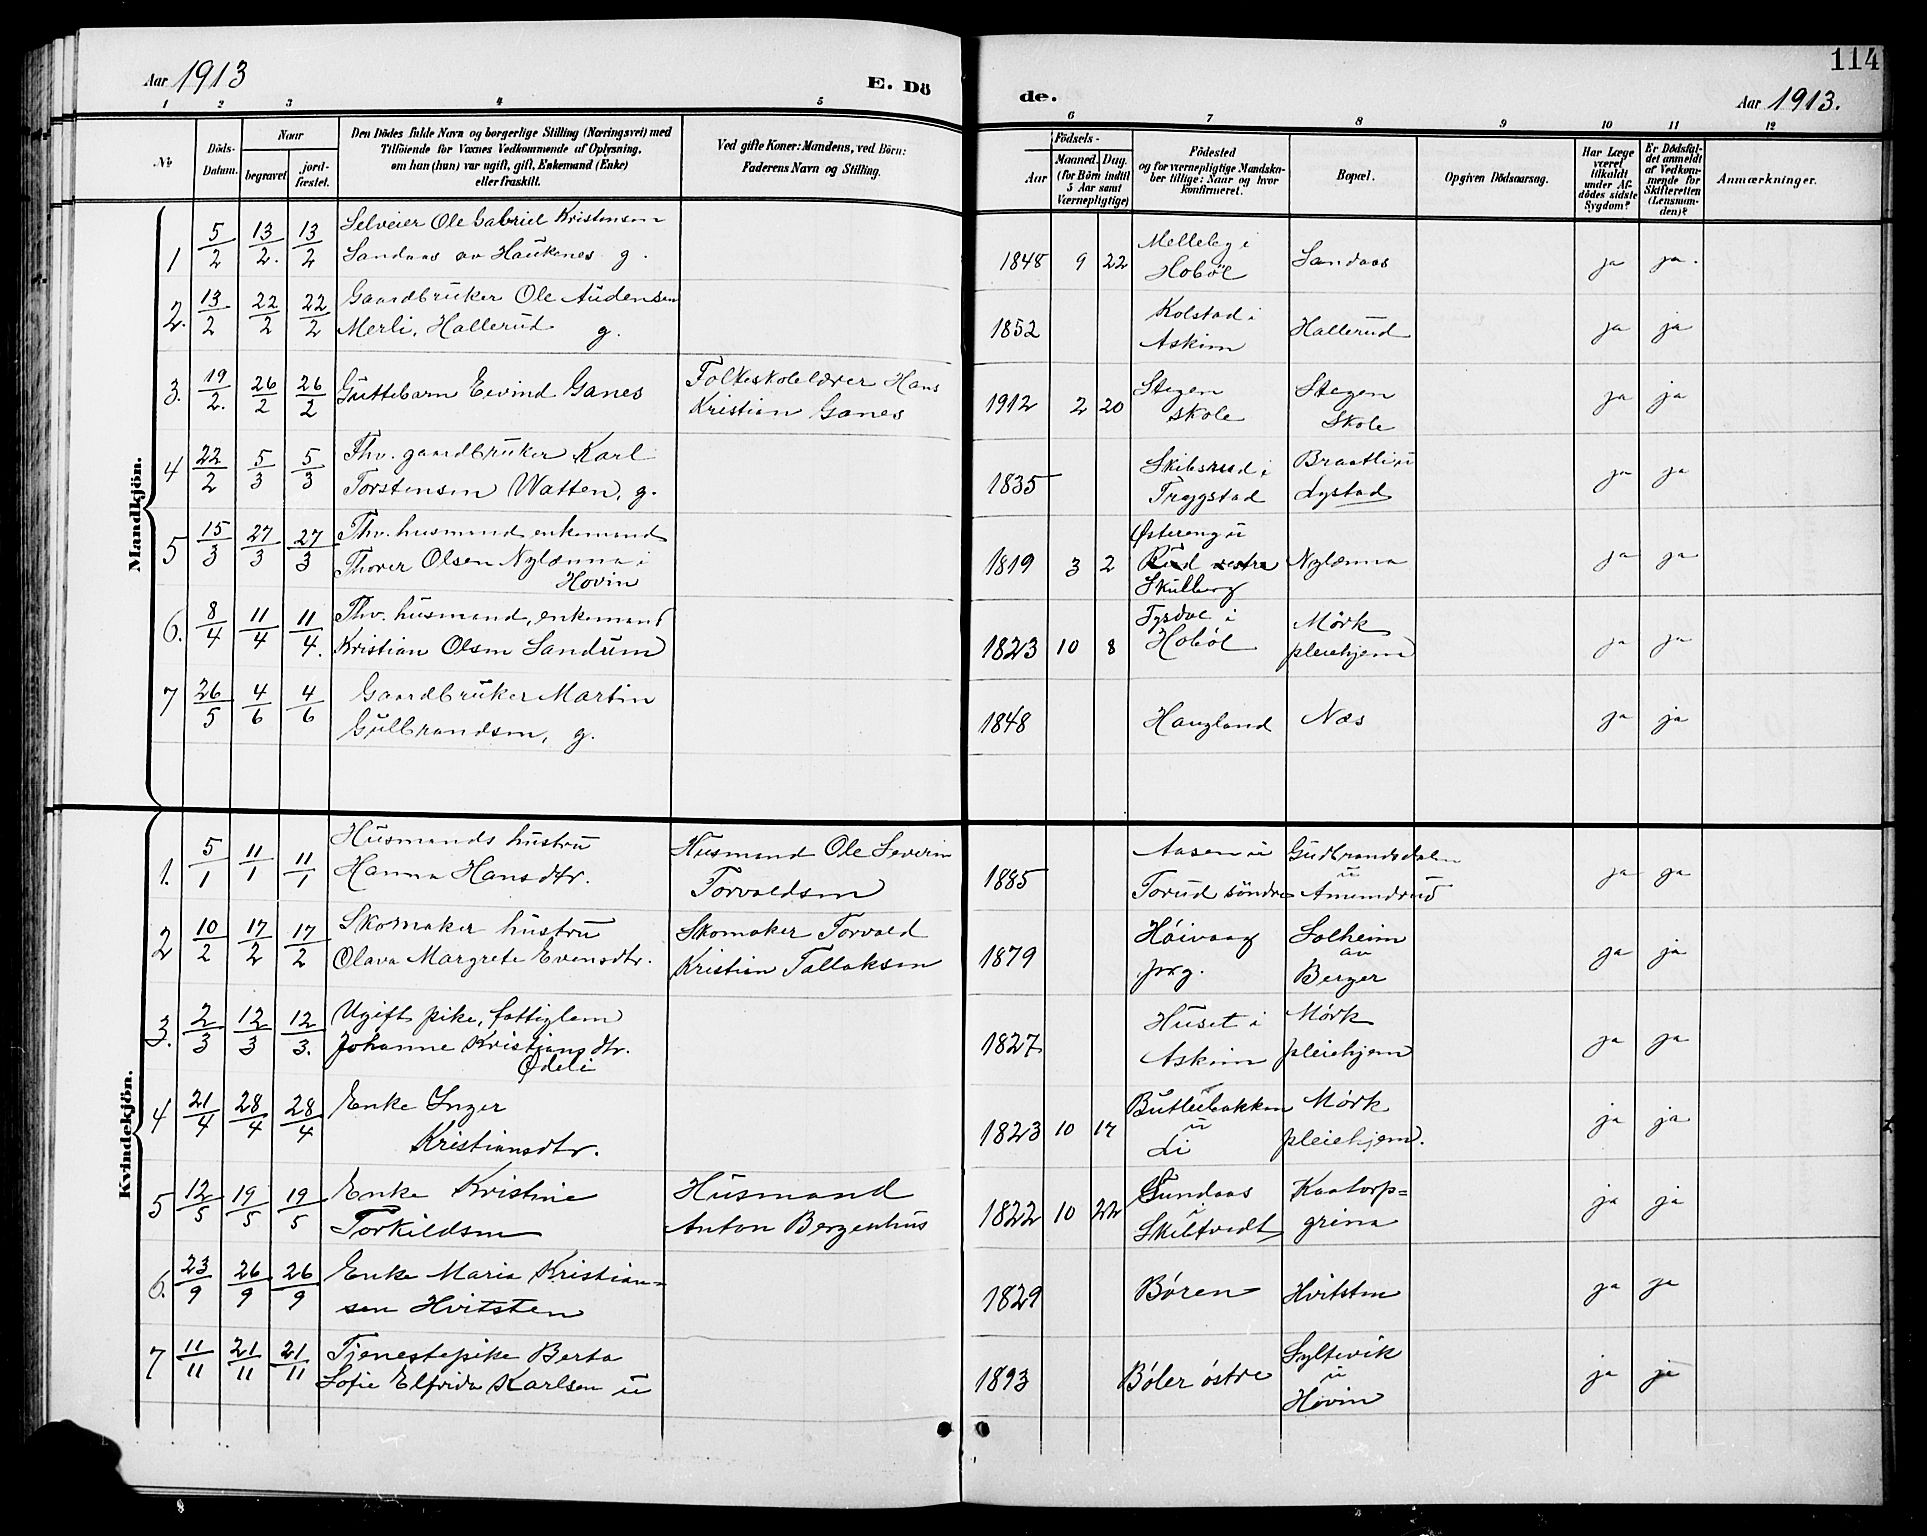 114
Aar 1913
E. Dö
de.
Aar 1913.
1 2 3 4 5 6 7 8 9 10 11 12
No
Döds-
Datum.
Naar
begravet
jord-
fæstet.
Den Dödes fulde Navn og borgerlige Stilling (Næringsvei) med
Tilföiende for Voxnes Vedkommende af Oplysning,
om han (hun) var ugift, gift, Enkemand (Enke)
eller fraskilt.
Ved gifte Koner: Mandens, ved Börn:
Faderens Navn og Stilling.
Födsels-
Aar
Maaned. Dag.
(for Börn indtil
5 Aar samt
Værnepligtige)
Födested
og for værnepligtige Mandska-
ber tillige: Naar og hvor
konfirmeret.
Bopæl.
Opgiven Dödsaarsag.
Har Læge
været
tilkaldt
under Af-
dödes sidste
Sygdom?
Er Dödsfal-
det anmeldt
af Vedkom-
mende for
Skifteretten
(Lensman-
den)?
Anmærkninger.
Mandkjön.
1 5/2 13/2. 13/2 Selveier Ole Gabriel Kristensen
Sandaas av Haukenes g.
1848 9 22 Melleby i
Hoböl
Sandaas ja ja.
2. 13/2 22/2 22/2 Gaardbruker Ole Audensen
Merli, Hallerud g.
1852 Kolstad i
Askim
Hallerud ja ja
3. 19/2. 26/2 26/2 Guttebarn Eivind Ganes
Folkeskolelærer Hans
Kristian Ganes
1912 2 20 Stegen
skole
Stegen
Skole
ja ja
4 22/2 5/3 5/3 Thv. gaardbruker Karl
Torstensen Watten, g.
1835 Skibsrud i
Trygstad
Braatli u
Lystad
ja ja
5 15/3 27/3 27/3 Thv. husmand, enkemand
Thorer Olsen Nylænna i
Hovin
1819 3 2 Østereng u
Rud vestre
Skulberg
Nylænna ja ja
6. 8/4 11/4 11/4. Thv. husmand, enkemand
Kristian Olsen Sandum
1823 10 8 Tysdal i
Hobøl
Mörk
pleiehjem
ja ja
7 26/5 4/6 4/6 Gaardbruker Martin
Gulbrandsen, g.
1848 Haugland Næs ja ja
Kvindekjön.
1. 5/1 11/1 11/1 Husmands hustru
Hanna Hansdtr.
Husmand Ole Severin
Torvaldsen
1885 Aasen u
Torud söndre
Gudbrandsdalen
u
Amundrud
ja ja
2 10/2 17/2 17/2 Skomaker hustru
Olava Margrete Evensdtr.
Skomaker Torvald
Kristian Tallaksen
1879 Höivaag
prg.
Solheim
av
Berger
ja ja
3. 2/3 12/3 12/3. Ugift pike, fattiglem
Johanne Kristiansdtr.
Ødeli
1827 Huset i
Askim
Mørk
pleiehjem
ja ja
4 21/4 28/4 28/4 Enke Inger
Kristiansdtr.
1823 10 17 Butlerbakken
u
Li
Mørk
pleiehjem.
ja ja
5 12/5 19/5 19/5 Enke Kristine
Torkildsen
Husmand
Anton Bergenhus
1822 10 22 Sundaas
i
Skibtvedt
Kaatorp=
grina
ja ja
6. 23/9 26/9 26/9 Enke Maria Kristian=
sen Hvitsten
1829 Børen Hvitsten ja ja
7 11/11 21/11 21/11 Tjenestepike Berta
Sofie Elfrida Karlsen u
1893 Bøler østre
Syltevik
u
Hovin
ja ja